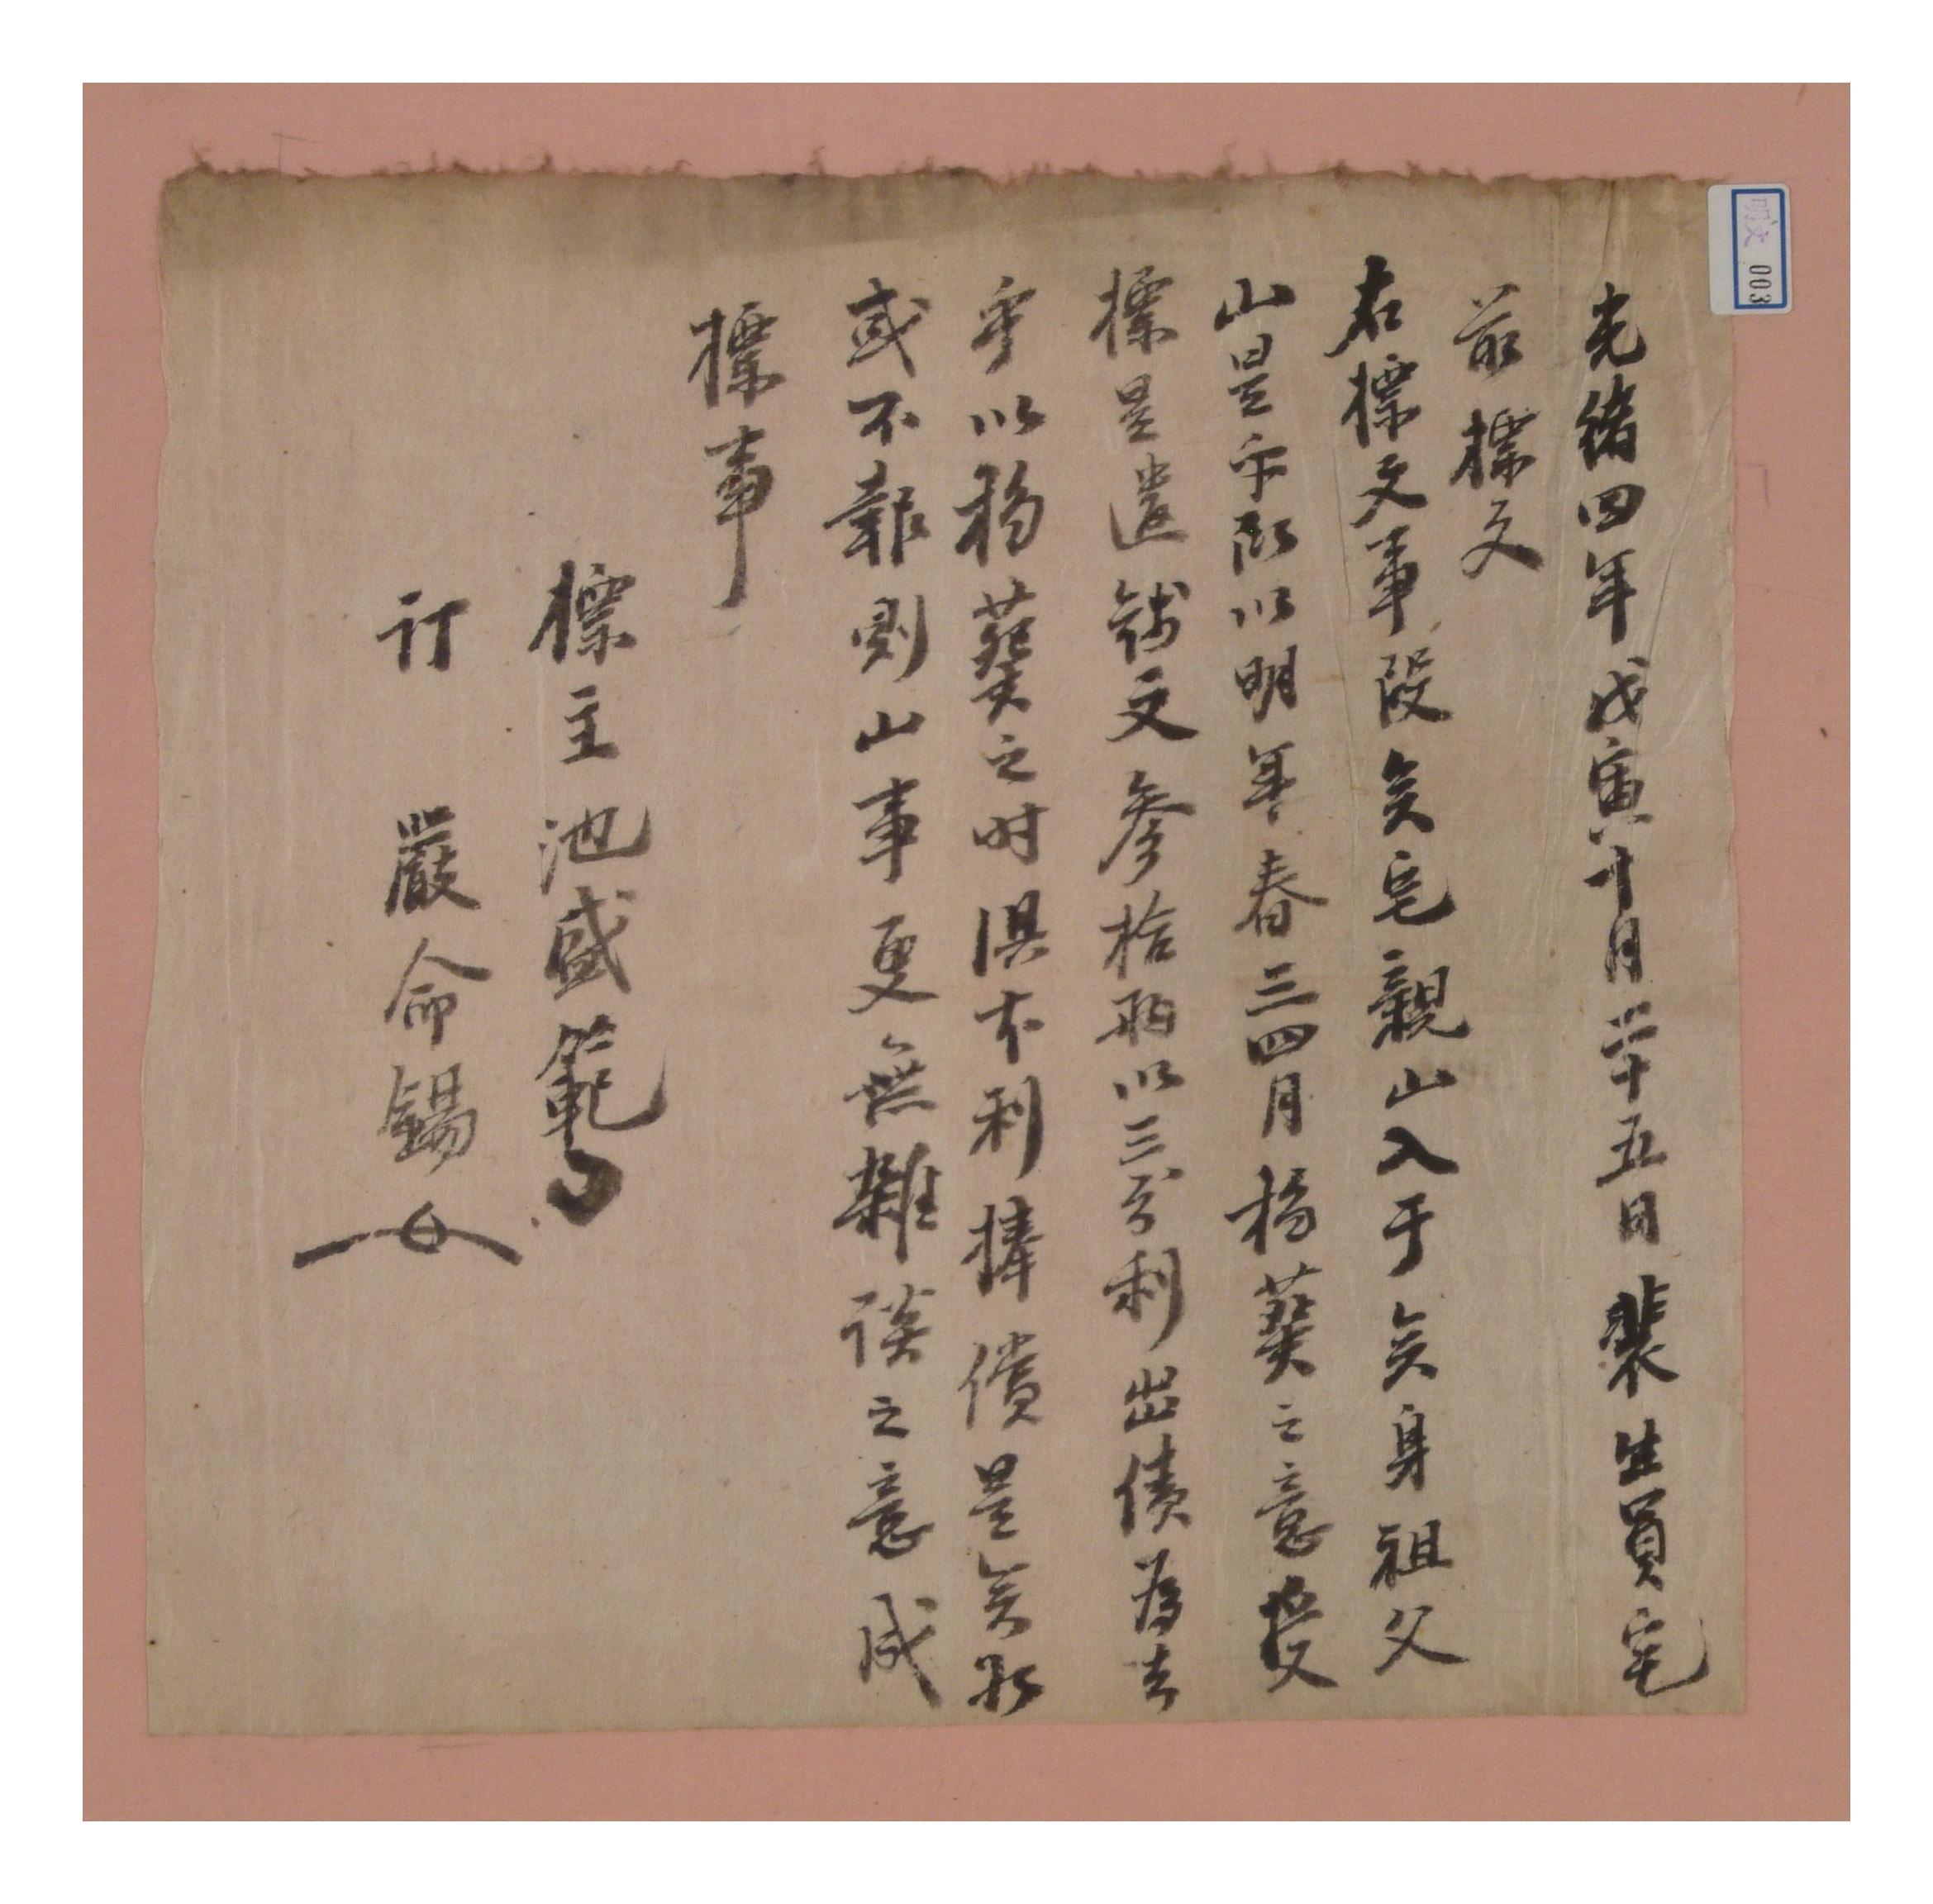 光緖四年戊寅十月二十五日 裴生員宅
前標文
右標文事段矣宅親山入于矣身祖父
山是乎所以明年春三四月移葬之意捧
標是遣錢文參拾兩以三分利出債爲去
乎以移葬之时俱本利捧償是矣如
或不報則山事更無雜談之意成
標事
標主池盛範
訂 嚴命錫
明文 003